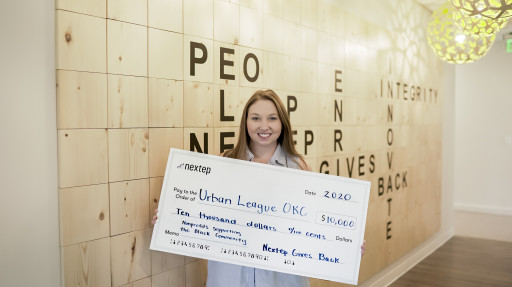 PEO
INTEGRITY
INNOVATE
GIVES BACK
nextep
Date 2020
Pay to the
Order of: Urban League OKC $10,000
Ten thousand dollars cents Dollars
Nonprofits Supporting
The Black Community
Memo Nextep Gives Back